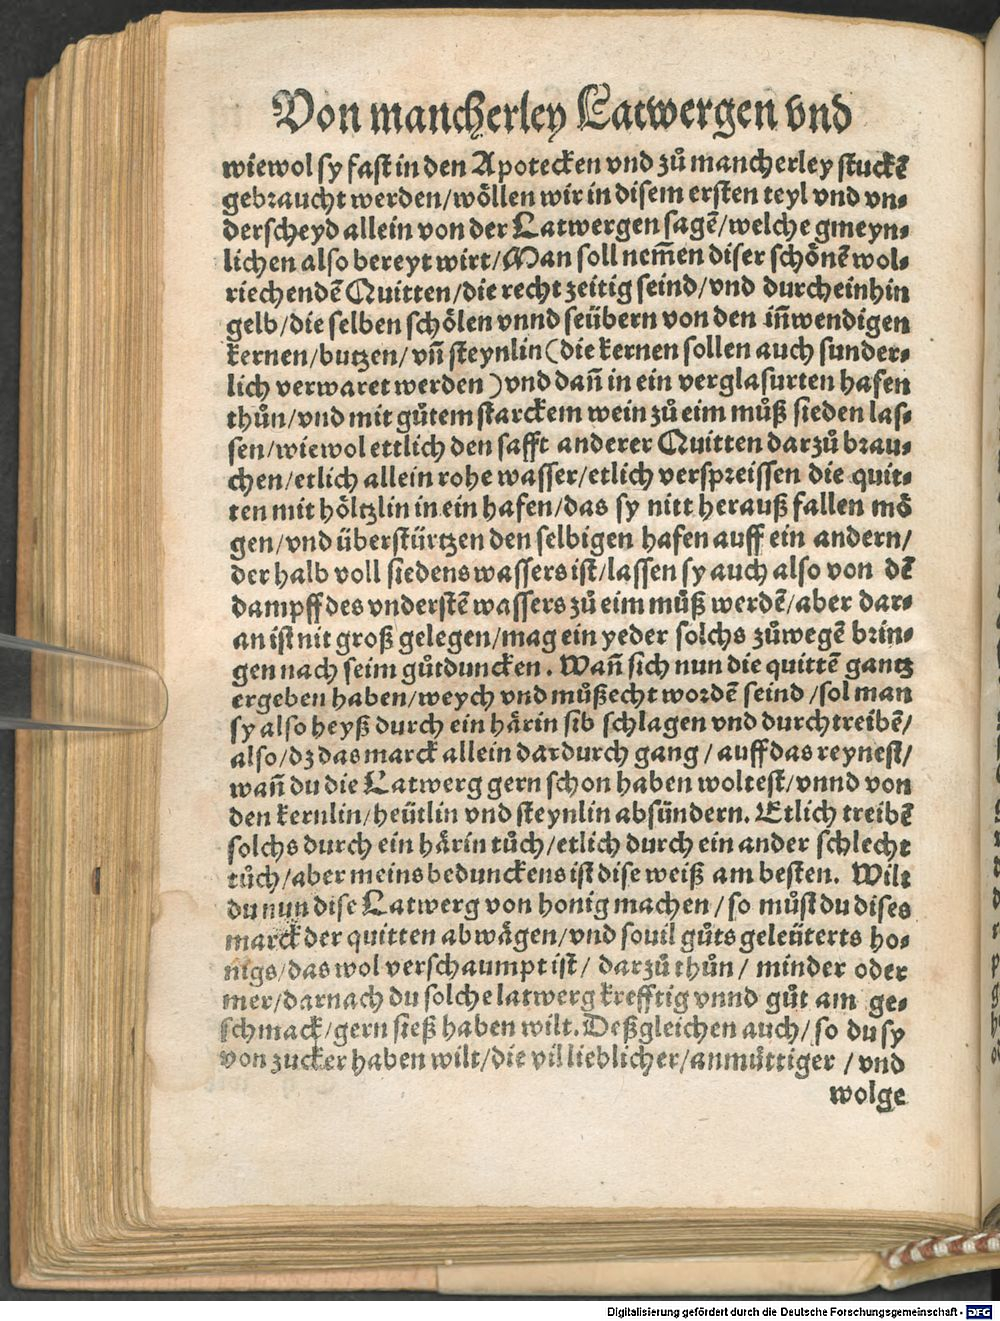 Von mancherley Latwergen vnd
wiewol sy fast in den Apotecken vnd zů mancherley stuckẽ
gebraucht werden/wöllen wir in disem ersten teyl vnd vn-
derscheyd allein von der Latwergen sagẽ/welche gmeyn-
lichen also bereyt wirt/Man soll nem̃en diser schönẽ wol-
riechendẽ Quitten/die recht zeitig seind/vnd durcheinhin
gelb/die selben schölen vnnd seübern von den iñwendigen
kernen/butzen/vñ steynlin (die kernen sollen auch sunder-
lich verwaret werden) vnd dañ in ein verglasurten hafen
thůn/vnd mit gůtem starckem wein zů eim můß sieden las-
sen/wiewol ettlich den safft anderer Quitten darzů brau-
chen/etlich allein rohe wasser/etlich verspreissen die quit-
ten mit höltzlin in ein hafen/das sy nitt herauß fallen mö
gen/vnd überstürtzen den selbigen hafen auff ein andern/
der halb voll siedens wassers ist/lassen sy auch also von dẽ
dampff des vnderstẽ wassers zů eim můß werdẽ/aber dar-
an ist nit groß gelegen/mag ein yeder solchs zůwegẽ brin-
gen nach seim gůtduncken. Wañ sich nun die quittẽ gantz
ergeben haben/weych vnd můßecht wordẽ seind/sol man
sy also heyß durch ein härin sib schlagen vnd durchtreibẽ/
also/dz das marck allein dardurch gang/auff das reynest/
wañ du die Latwerg gern schon haben woltest/vnnd von
den kernlin/heütlin vnd steynlin absündern. Etlich treibẽ
solchs durch ein härin tůch/etlich durch ein ander schlecht
tůch/aber meins bedunckens ist dise weiß am besten. Wilt
du nun dise Latwerg von honig machen/so můst du dises
marck der quitten abwägen/vnd souil gůts geleüterts ho-
nigs/das wol verschaumpt ist/darzů thůn/minder oder
mer/darnach du solche latwerg krefftig vnnd gůt am ge-
schmack/gern sieß haben wilt. Deßgleichen auch/so du sy
von zucker haben wilt/die vil lieblicher/anmůttiger/vnd
wolge
Digitalisierung gefördert durch die Deutsche Forschungsgemeinschaft - DFG